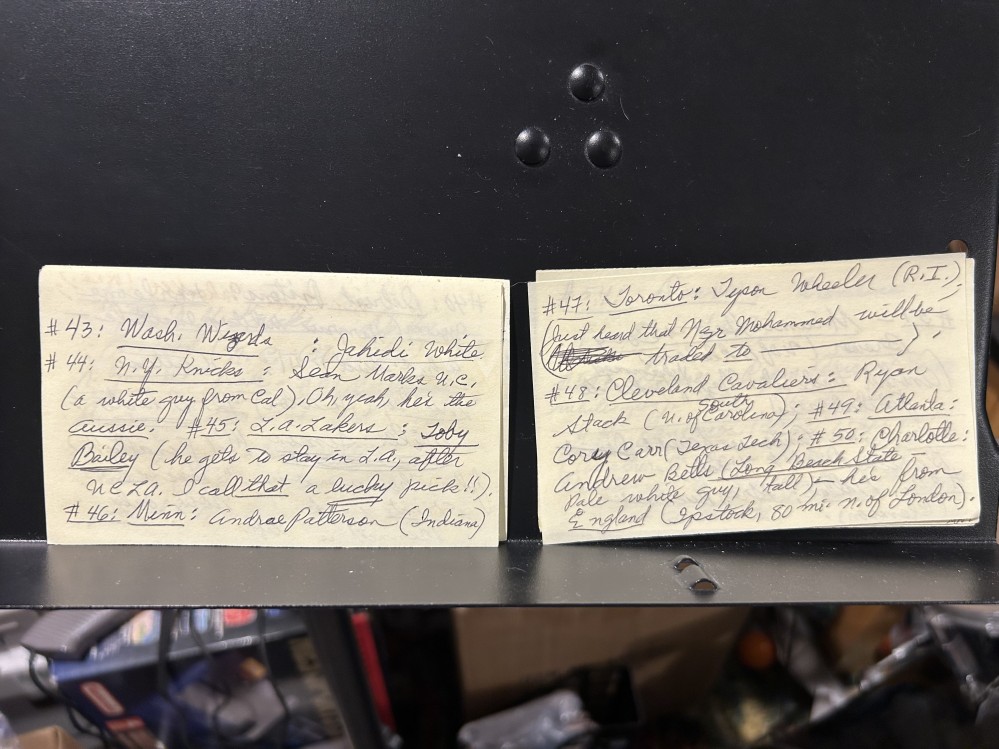 #43: Wash. Wizards : Jahidi White.
#44: N.Y. Knicks : Sean Marks U.C.
(a white guy from Cal). Oh, yeah, he's the
aussie. #45: L.A. Lakers : Toby
Bailey (he gets to stay in L.A., after
UCLA. I call that a lucky pick!!).
#46: Minn: Andrae Patterson (Indiana)
#47: Toronto: Tyson Wheeler (R.I.);
(Just heard that Nazr Mohammed will be
traded to );
#48: Cleveland Cavaliers: Ryan
Stack (U. of South Carolina); #49: Atlanta:
Corey Carr (Texas Tech); #50: Charlotte:
Andrew Betts (Long Beach State -
Pale white guy, tall) - he's from
England (Ipstock, 80 mi. n. of London).